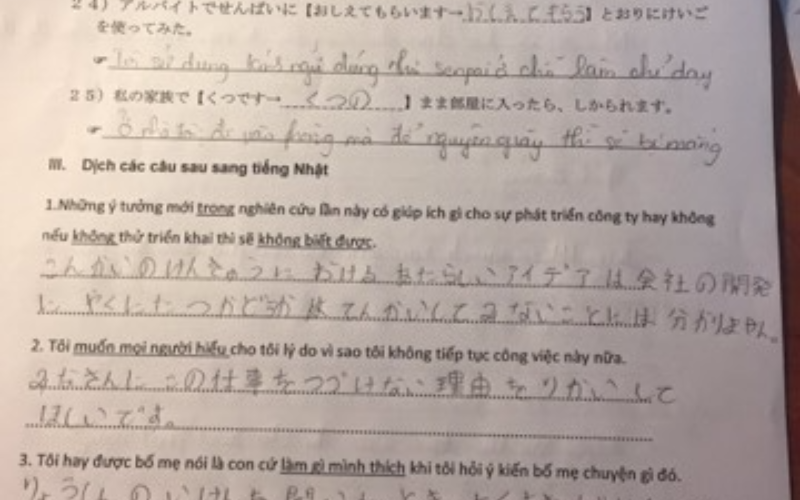 24) アルバイトでせんぱいに【おしえてもらいます→おしえてもらう】とおりにけいご
を使ってみた。
Tôi sử dụng kính ngữ đúng như senpai ở chỗ làm chỉ dạy
25) 私の家族で【くつです→くつの】まま部屋に入ったら、しかられます。
Ở nhà tôi đi vào phòng mà để nguyên giày thì sẽ bị mắng
III. Dịch các câu sau sang tiếng Nhật
1.Những ý tưởng mới trong nghiên cứu lần này có giúp ích gì cho sự phát triển công ty hay không
nếu không thử triển khai thì sẽ không biết được.
こんかいのけんきゅうにおけるあたらしいアイデアは会社の開発
にやくにたつかどうかはてんかいしてみないことには分かりません。
2. Tôi muốn mọi người hiểu cho tôi lý do vì sao tôi không tiếp tục công việc này nữa.
みなさんにこの仕事をつづけない理由をりかいして
ほしいです。
3. Tôi hay được bố mẹ nói là con cứ làm gì mình thích khi tôi hỏi ý kiến bố mẹ chuyện gì đó.
りょうしんのいけんを聞